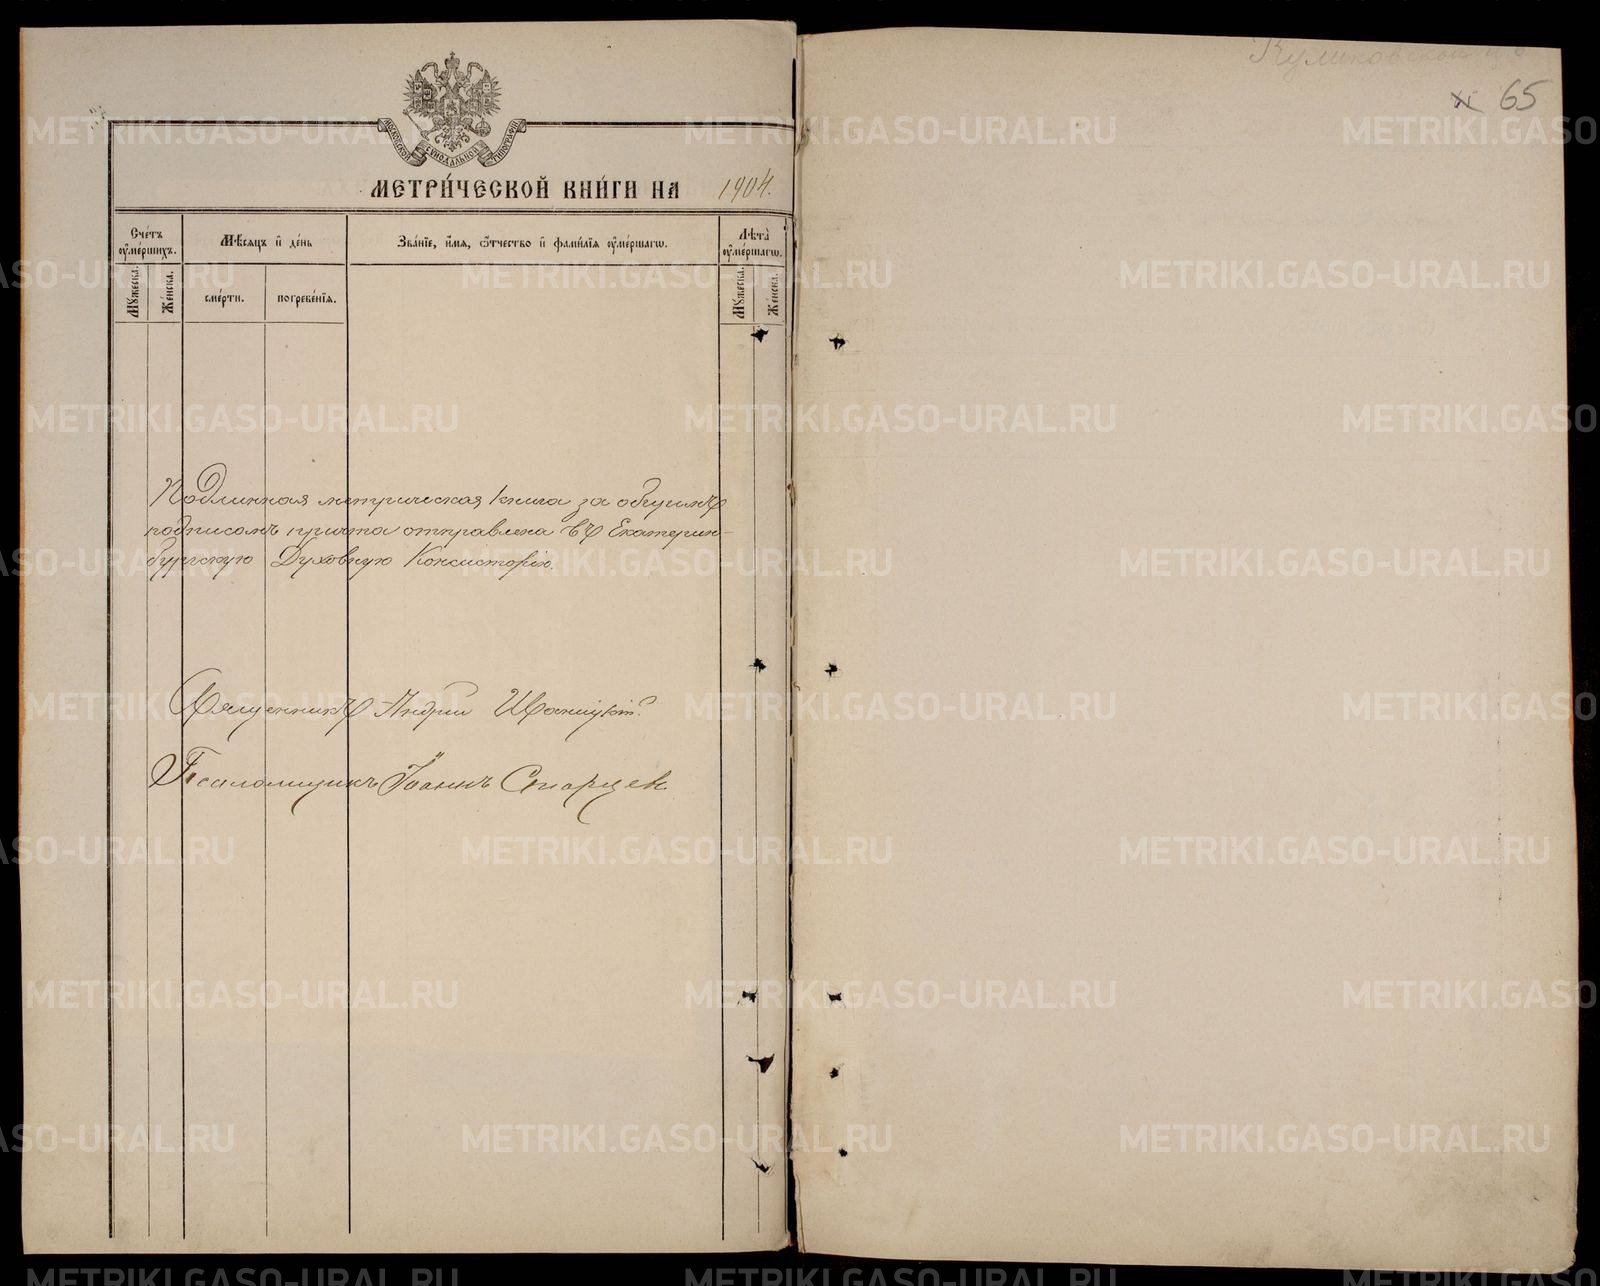 Куликовской
65
МОСКОВСКОЙ СѴНОДАЛЬНОЙ ТИПОГРАФІИ
МЕТРИ́ЧЕСКОЙ КНИ́ГИ НА 1904.
Сче́тъ ѹ҆ме́ршихъ.
Мѣ́сяцъ и҆ де́нь
Зва́нїе, и҆́мя, ѻ҆́тчество и҆ фами́лїя ѹ҆ме́ршагѡ.
Лѣ́та ѹ҆ме́ршагѡ.
Мꙋ́жеска.
Же́нска.
сме́рти.
погребе́нїя.
Мꙋ́жеска.
Же́нска.
Подлинная метрическая книга за общимъ
подписомъ причта отправлена въ Екатерин-
бургскую Духовную Консисторію.
Священникъ Андрей
Псаломщикъ Іоаннъ Старцев
METRIKI.GASO-URAL.RU